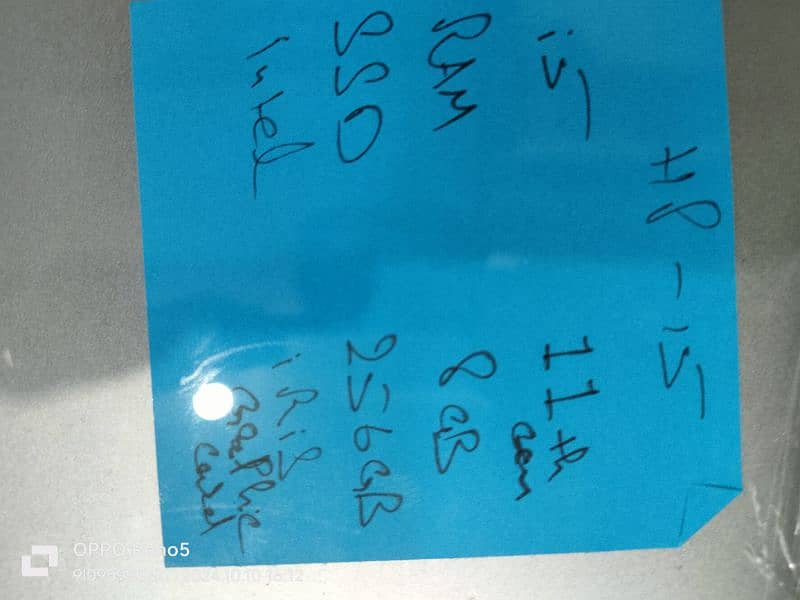 HP - 15
i5 11th Gen
RAM 8 GB
SSD 256 GB
Intel iRiS
Graphic Card
OPPO Reno5